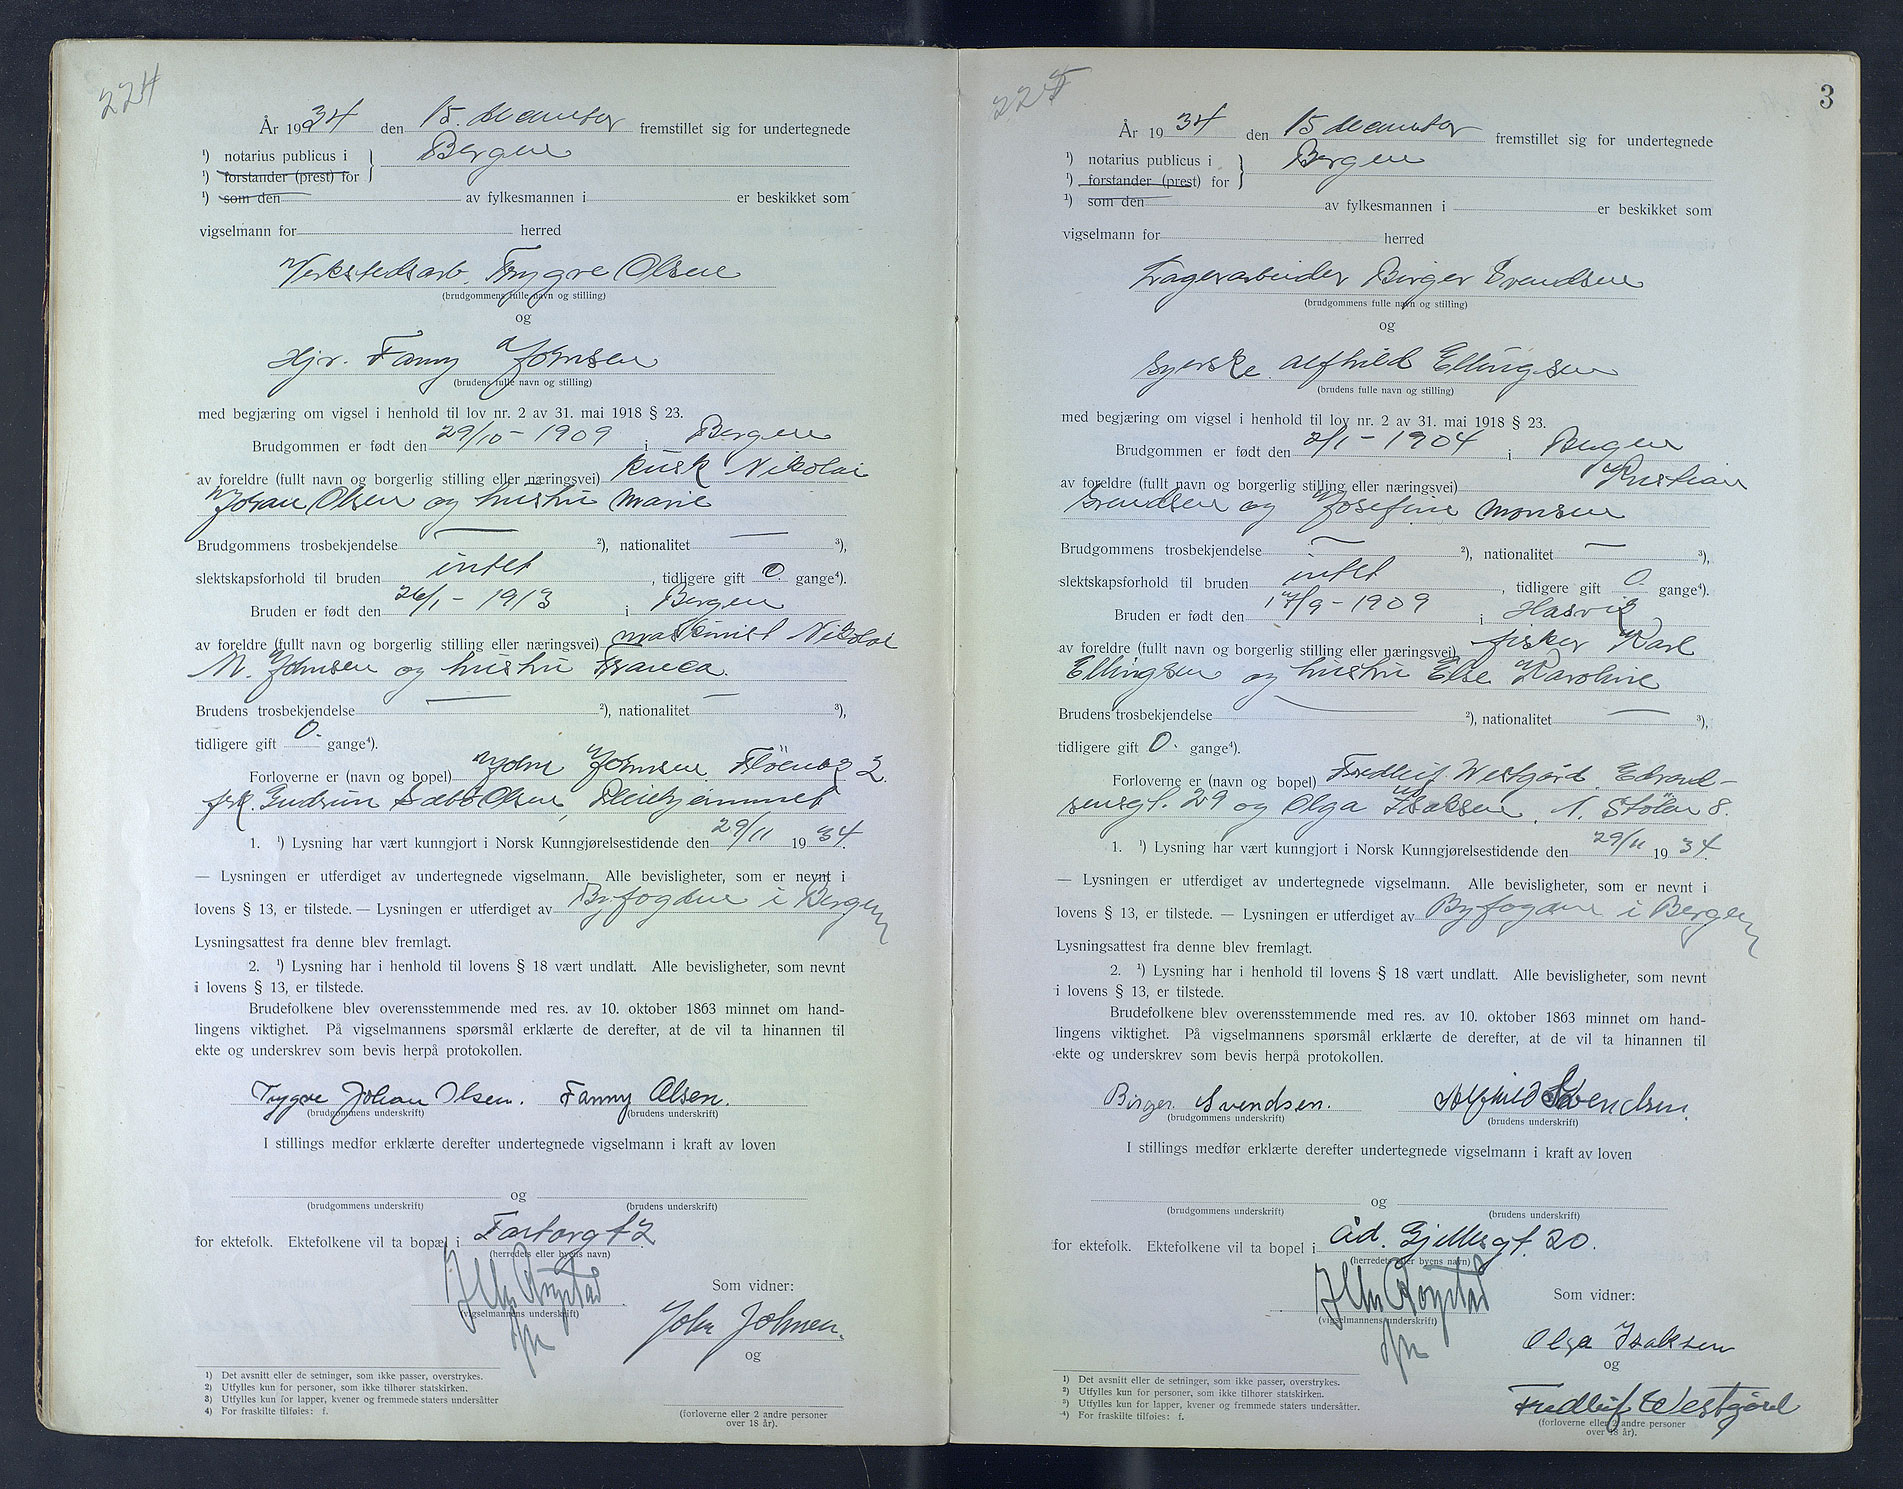 224
År 1934 den 15. desember fremstillet sig for undertegnede
¹) notarius publicus i } Bergen
¹) forstander (prest) for
¹) som den av fylkesmannen i er beskikket som
vigselmann for herred
Verkstedsarb. Trygve Olsen
(brudgommens fulle navn og stilling)
og
Hjv. Fanny Johnsen
(brudens fulle navn og stilling)
med begjæring om vigsel i henhold til lov nr. 2 av 31. mai 1918 § 23.
Brudgommen er født den 29/10 - 1909 i Bergen
av foreldre (fullt navn og borgerlig stilling eller næringsvei) kusk Nikolai
Johan Olsen og hustru Marie
Brudgommens trosbekjendelse — ²), nationalitet — ³),
slektskapsforhold til bruden intet, tidligere gift 0. gange⁴).
Bruden er født den 26/1 - 1913 i Bergen
av foreldre (fullt navn og borgerlig stilling eller næringsvei) maskinist Nikolai
M. Johnsen og hustru Franca.
Brudens trosbekjendelse — ²), nationalitet — ³),
tidligere gift 0. gange⁴).
Forloverne er (navn og bopel) John Johnsen, Fløenvg 2
frk. Gudrun Sæbø Olsen, Pleiehjemmet
1. ¹) Lysning har vært kunngjort i Norsk Kunngjørelsestidende den 29/11 1934.
— Lysningen er utferdiget av undertegnede vigselmann. Alle bevisligheter, som er nevnt i
lovens § 13, er tilstede. — Lysningen er utferdiget av Byfogden i Bergen
Lysningsattest fra denne blev fremlagt.
2. ¹) Lysning har i henhold til lovens § 18 vært undlatt. Alle bevisligheter, som nevnt
i lovens § 13, er tilstede.
Brudefolkene blev overensstemmende med res. av 10. oktober 1863 minnet om hand-
lingens viktighet. På vigselmannens spørsmål erklærte de derefter, at de vil ta hinannen til
ekte og underskrev som bevis herpå protokollen.
Trygve Johan Olsen. Fanny Olsen.
(brudgommens underskrift) (brudens underskrift)
I stillings medfør erklærte derefter undertegnede vigselmann i kraft av loven
og
(brudgommens underskrift) (brudens underskrift)
for ektefolk. Ektefolkene vil ta bopæl i Torborgt 2
(herredets eller byens navn)
Som vidner:
(vigselmannens underskrift)
John Johnsen.
og
1) Det avsnitt eller de setninger, som ikke passer, overstrykes.
2) Utfylles kun for personer, som ikke tilhører statskirken.
3) Utfylles kun for lapper, kvener og fremmede staters undersåtter
4) For fraskilte tilføies: f.
(forloverne eller 2 andre personer
over 18 år).
225
3
År 1934 den 15 desember fremstillet sig for undertegnede
¹) notarius publicus i } Bergen
¹) forstander (prest) for
¹) som den av fylkesmannen i er beskikket som
vigselmann for herred
Lagerarbeider Birger Svendsen
(brudgommens fulle navn og stilling)
og
Syerske Alfhild Ellingsen
(brudens fulle navn og stilling)
med begjæring om vigsel i henhold til lov nr. 2 av 31. mai 1918 § 23.
Brudgommen er født den 2/1 - 1904 i Bergen
av foreldre (fullt navn og borgerlig stilling eller næringsvei) Kristian
Svendsen og Josefine Monsen
Brudgommens trosbekjendelse — ²), nationalitet — ³),
slektskapsforhold til bruden intet, tidligere gift 0. gange⁴).
Bruden er født den 17/9 - 1909 i Hasvig
av foreldre (fullt navn og borgerlig stilling eller næringsvei) fisker Karl
Ellingsen og hustru Else Karoline
Brudens trosbekjendelse — ²), nationalitet — ³),
tidligere gift 0. gange⁴).
Forloverne er (navn og bopel) Fredleif Westgård, Edvard-
sensgt. 29 og Olga Isaksen, N. Stølen 8.
1. ¹) Lysning har vært kunngjort i Norsk Kunngjørelsestidende den 29/11 1934.
— Lysningen er utferdiget av undertegnede vigselmann. Alle bevisligheter, som er nevnt i
lovens § 13, er tilstede. — Lysningen er utferdiget av Byfogden i Bergen
Lysningsattest fra denne blev fremlagt.
2. ¹) Lysning har i henhold til lovens § 18 vært undlatt. Alle bevisligheter, som nevnt
i lovens § 13, er tilstede.
Brudefolkene blev overensstemmende med res. av 10. oktober 1863 minnet om hand-
lingens viktighet. På vigselmannens spørsmål erklærte de derefter, at de vil ta hinannen til
ekte og underskrev som bevis herpå protokollen.
Birger Svendsen. Alfhild Svendsen.
(brudgommens underskrift) (brudens underskrift)
I stillings medfør erklærte derefter undertegnede vigselmann i kraft av loven
og
(brudgommens underskrift) (brudens underskrift)
for ektefolk. Ektefolkene vil ta bopel i Ad. Gjellesgt. 20.
(herredets eller byens navn)
Som vidner:
(vigselmannens underskrift)
Olga Isaksen
og
Fredleif Westgård
(forloverne eller 2 andre personer
over 18 år).
1) Det avsnitt eller de setninger, som ikke passer, overstrykes.
2) Utfylles kun for personer, som ikke tilhører statskirken.
3) Utfylles kun for lapper, kvener og fremmede staters undersåtter.
4) For fraskilte tilføies: f.